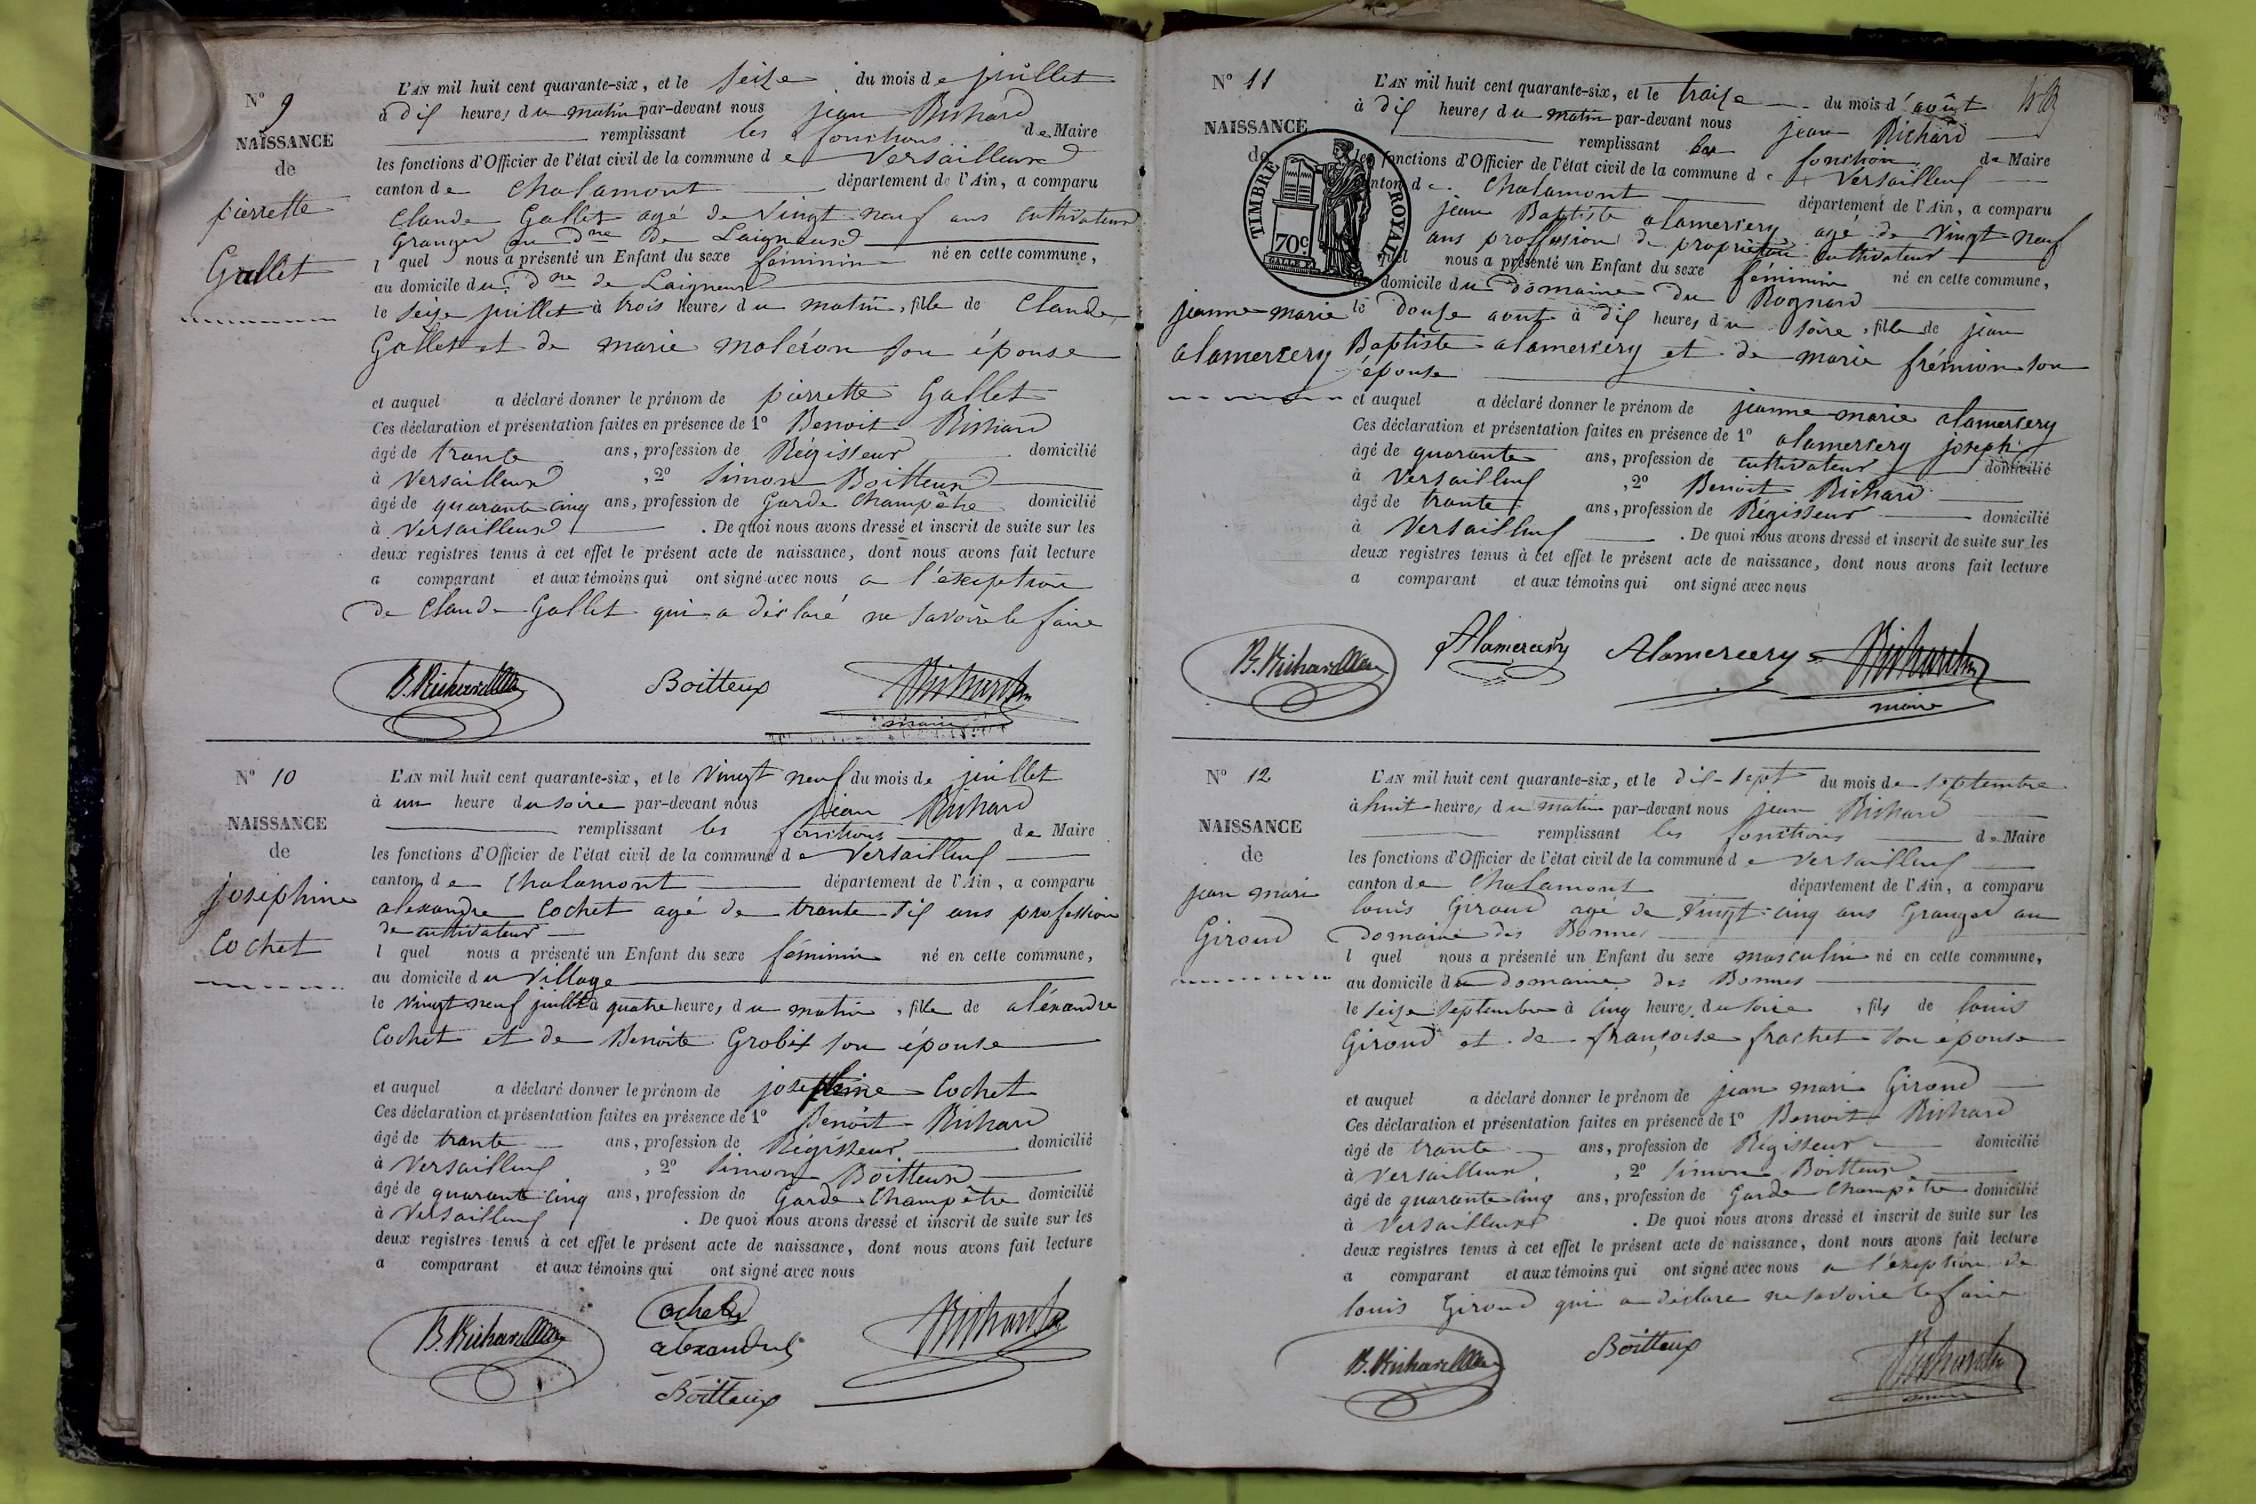 N° 9
NAISSANCE
de
pierrette
Gallet
L'AN mil huit cent quarante-six, et le seize du mois de juillet
à dix heures du matin par-devant nous jean Richard
remplissant les fonctions de Maire
les fonctions d'Officier de l'état civil de la commune de Versailleux
canton de Chalamont département de l'Ain, a comparu
Claude Gallet agé de vingt neuf ans cultivateur
Granger au dne de Laigneux
l quel nous a présenté un Enfant du sexe féminin né en cette commune,
au domicile du dne de Laigneux
le seize juillet à trois heures du matin, fille de Claude
Gallet et de marie moléron son épouse
et auquel a déclaré donner le prénom de pierrette Gallet
Ces déclaration et présentation faites en présence de 1° Benoit Richard
âgé de trante ans, profession de Régisseur domicilié
à Versailleux, 2° Simon Boitteux
âgé de quarante cinq ans, profession de Garde Champêtre domicilié
à Versailleux. De quoi nous avons dressé et inscrit de suite sur les
deux registres tenus à cet effet le présent acte de naissance, dont nous avons fait lecture
a comparant et aux témoins qui ont signé avec nous a l'éxeption
de Claude Gallet qui a déclaré ne savoir le faire
B. Richard Boitteux Richard
maire
N° 10
NAISSANCE
de
joséphine
Cochet
L'AN mil huit cent quarante-six, et le vingt neuf du mois de juillet
à un heure du soire par-devant nous jean Richard
remplissant les fonctions de Maire
les fonctions d'Officier de l'état civil de la commune de Versailleux
canton de Chalamont département de l'Ain, a comparu
alexandre Cochet agé de trante dix ans profession
de cultivateur
l quel nous a présenté un Enfant du sexe féminin né en cette commune,
au domicile du village
le vingt neuf juillet à quatre heures du matin, fille de aléxandre
Cochet et de Benoite Grobix son épouse
et auquel a déclaré donner le prénom de josephine Cochet
Ces déclaration et présentation faites en présence de 1° Benoit Richard
âgé de trante ans, profession de Régisseur domicilié
à Versailleux, 2° Simon Boitteux
âgé de quarante cinq ans, profession de Garde Champêtre domicilié
à Versailleux. De quoi nous avons dressé et inscrit de suite sur les
deux registres tenus à cet effet le présent acte de naissance, dont nous avons fait lecture
a comparant et aux témoins qui ont signé avec nous
B. Richard Cochet Richard
alexandre
Boitteux
N° 11
NAISSANCE
de
TIMBRE ROYAL
70c
jeanne marie
alamercery
L'AN mil huit cent quarante-six, et le traise du mois d'août
à dix heures du matin par-devant nous jean Richard
remplissant les fonction de Maire
les fonctions d'Officier de l'état civil de la commune de Versailleux
canton de Chalamont département de l'Ain, a comparu
jean Baptiste alamercery agé de vingt neuf
ans proffession de propriétaire cultivateur
quel nous a présenté un Enfant du sexe féminin né en cette commune,
au domicile du domaine du Rognard
le douse aout à dix heures du soire, fille de jean
Baptiste alamercery et de marie frémion son
épouse
et auquel a déclaré donner le prénom de jeanne marie alamercery
Ces déclaration et présentation faites en présence de 1° alamercery joseph
âgé de quarante ans, profession de cultivateur domicilié
à Versailleux, 2° Benoit Richard
âgé de trante ans, profession de Régisseur domicilié
à Versailleux. De quoi nous avons dressé et inscrit de suite sur les
deux registres tenus à cet effet le présent acte de naissance, dont nous avons fait lecture
a comparant et aux témoins qui ont signé avec nous
B. Richard Alamercery Alamercery Richard
maire
N° 12
NAISSANCE
de
jean mari
Giroud
L'AN mil huit cent quarante-six, et le dix-sept du mois de septembre
à huit heures du matin par-devant nous jean Richard
remplissant les fonctions de Maire
les fonctions d'Officier de l'état civil de la commune de Versailleux
canton de Chalamont département de l'Ain, a comparu
louis Giroud agé de vingt-cinq ans Granger au
domaine des Bonnes
l quel nous a présenté un Enfant du sexe masculin né en cette commune,
au domicile du domaine des Bonnes
le seize septembre à cinq heures du soire, fils de louis
Giroud et de françoise frachet son épouse
et auquel a déclaré donner le prénom de jean mari Giroud
Ces déclaration et présentation faites en présence de 1° Benoit Richard
âgé de trante ans, profession de Régisseur domicilié
à Versailleux, 2° Simon Boitteux
âgé de quarante cinq ans, profession de Garde Champêtre domicilié
à Versailleux. De quoi nous avons dressé et inscrit de suite sur les
deux registres tenus à cet effet le présent acte de naissance, dont nous avons fait lecture
a comparant et aux témoins qui ont signé avec nous a l'éxeption de
louis Giroud qui a déclare ne savoire le faire
B. Richard Boitteux Richard
maire